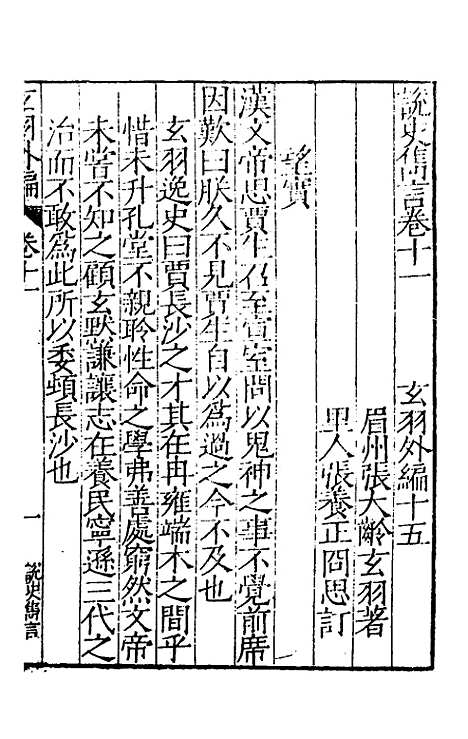 說史雋言卷十一 玄羽外編十五
眉州張大齡玄羽著
里人張養正囧思訂
望實
漢文帝思賈生召至宣室問以鬼神之事不覺前席
因歎曰朕久不見賈生自以為過之今不及也
玄羽逸史曰賈長沙之才其在冉雍端木之間乎
惜未升孔堂不親聆性命之學弗善處窮然文帝
未甞不知之顧玄默謙讓志在養民寧遜三代之
治而不敢為此所以委頓長沙也
玄羽外編 卷十一 一 說史雋言